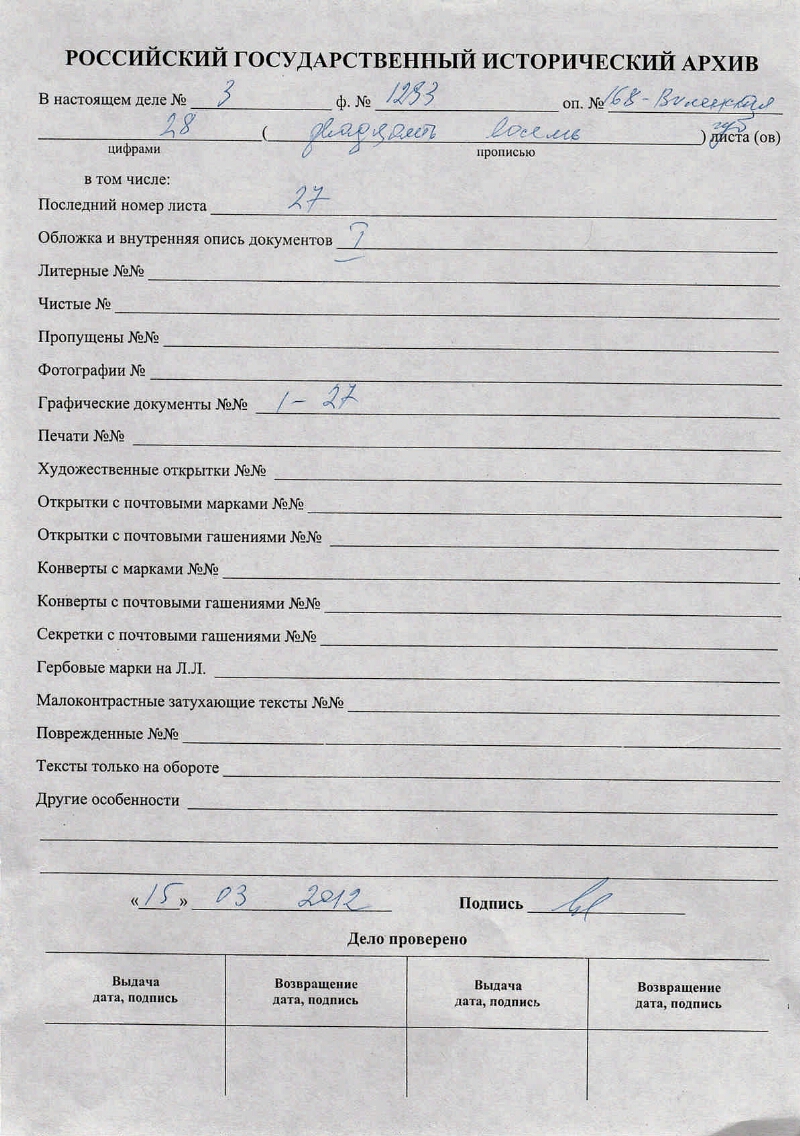 РОССИЙСКИЙ ГОСУДАРСТВЕННЫЙ ИСТОРИЧЕСКИЙ АРХИВ
В настоящем деле № 3 ф. № 1293 оп. № 168-Виленская
28 ( двадцать восемь ) листа (ов) губ
цифрами прописью
в том числе:
Последний номер листа 27
Обложка и внутренняя опись документов 1
Литерные №№
Чистые №
Пропущены №№
Фотографии №
Графические документы №№ 1-27
Печати №№
Художественные открытки №№
Открытки с почтовыми марками №№
Открытки с почтовыми гашениями №№
Конверты с марками №№
Конверты с почтовыми гашениями №№
Секретки с почтовыми гашениями №№
Гербовые марки на Л.Л.
Малоконтрастные затухающие тексты №№
Поврежденные №№
Тексты только на обороте
Другие особенности
«15» 03 2012 Подпись
Дело проверено
Выдача Возвращение Выдача Возвращение
дата, подпись дата, подпись дата, подпись дата, подпись